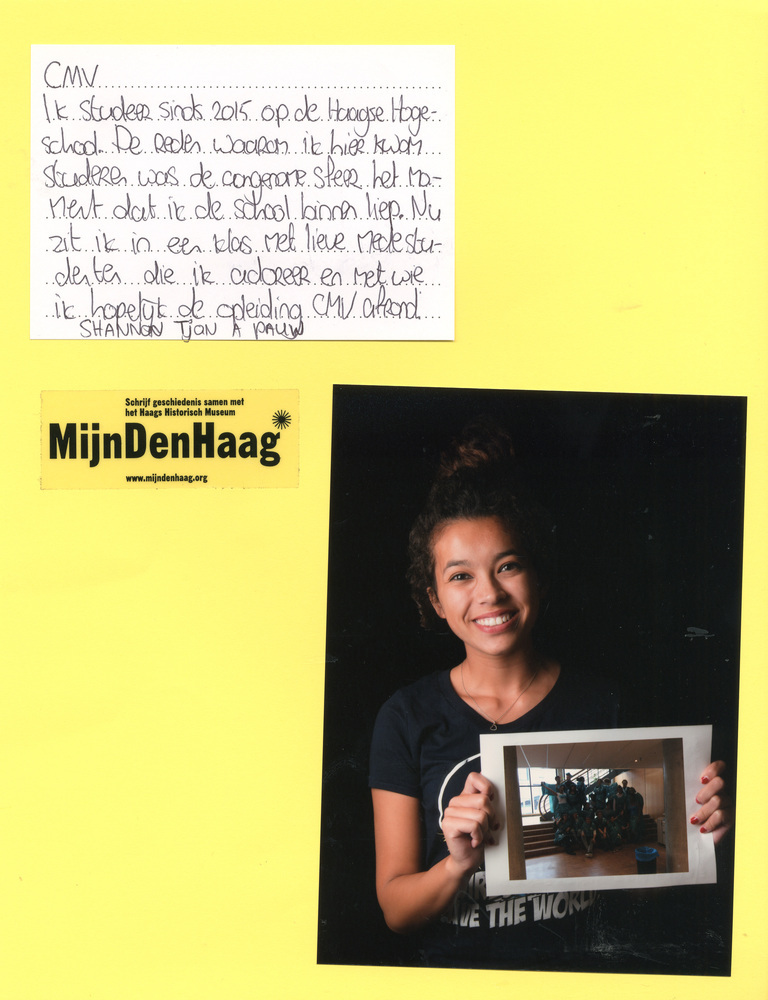 CMV
Ik studeer sinds 2015 op de Haagse Hoge-
school. De reden waarom ik hier kwam
studeren was de aangename sfeer het mo-
ment dat ik de school binnen liep. Nu
zit ik in een klas met lieve medestu-
denten die ik adoreer en met wie
ik hopelijk de opleiding CMV afrond.
SHANNON TJON A PAUW
Schrijf geschiedenis samen met
het Haags Historisch Museum
MijnDenHaag
www.mijndenhaag.org
THE WORLD